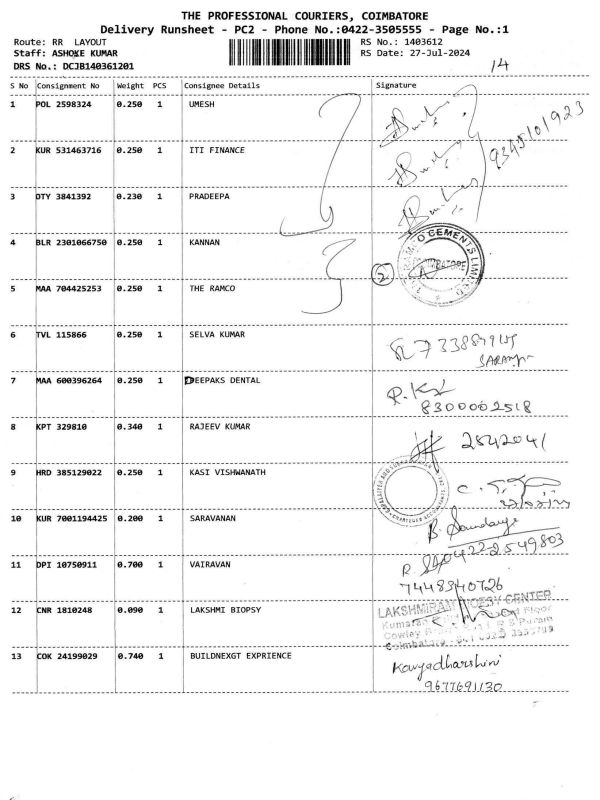 THE PROFESSIONAL COURIERS, COIMBATORE
Delivery Runsheet - PC2 - Phone No.:0422-3505555 - Page No.:1
Route: RR LAYOUT RS No.: 1403612
Staff: ASHOKE KUMAR RS Date: 27-Jul-2024
DRS No.: DCJB140361201 14
S No Consignment No Weight PCS Consignee Details Signature
1 POL 2598324 0.250 1 UMESH
9345101923
2 KUR 531463716 0.250 1 ITI FINANCE
3 DTY 3841392 0.230 1 PRADEEPA
4 BLR 2301066750 0.250 1 KANNAN
CEMENTS LIMITED
2
5 MAA 704425253 0.250 1 THE RAMCO
6 TVL 115866 0.250 1 SELVA KUMAR
7 MAA 600396264 0.250 1 DEEPAKS DENTAL
8300002518
8 KPT 329810 0.340 1 RAJEEV KUMAR
2542041
9 HRD 385129022 0.250 1 KASI VISHWANATH
CHARTERED ACCOUNTANTS
10 KUR 7001194425 0.200 1 SARAVANAN
0422-2549803
11 DPI 10750911 0.700 1 VAIRAVAN
7448340726
12 CNR 1810248 0.090 1 LAKSHMI BIOPSY
CENTER
Floor
Cowley R S Puram
Coimbatore
13 COK 24199029 0.740 1 BUILDNEXGT EXPRIENCE
Kavyadharshini
9677691130